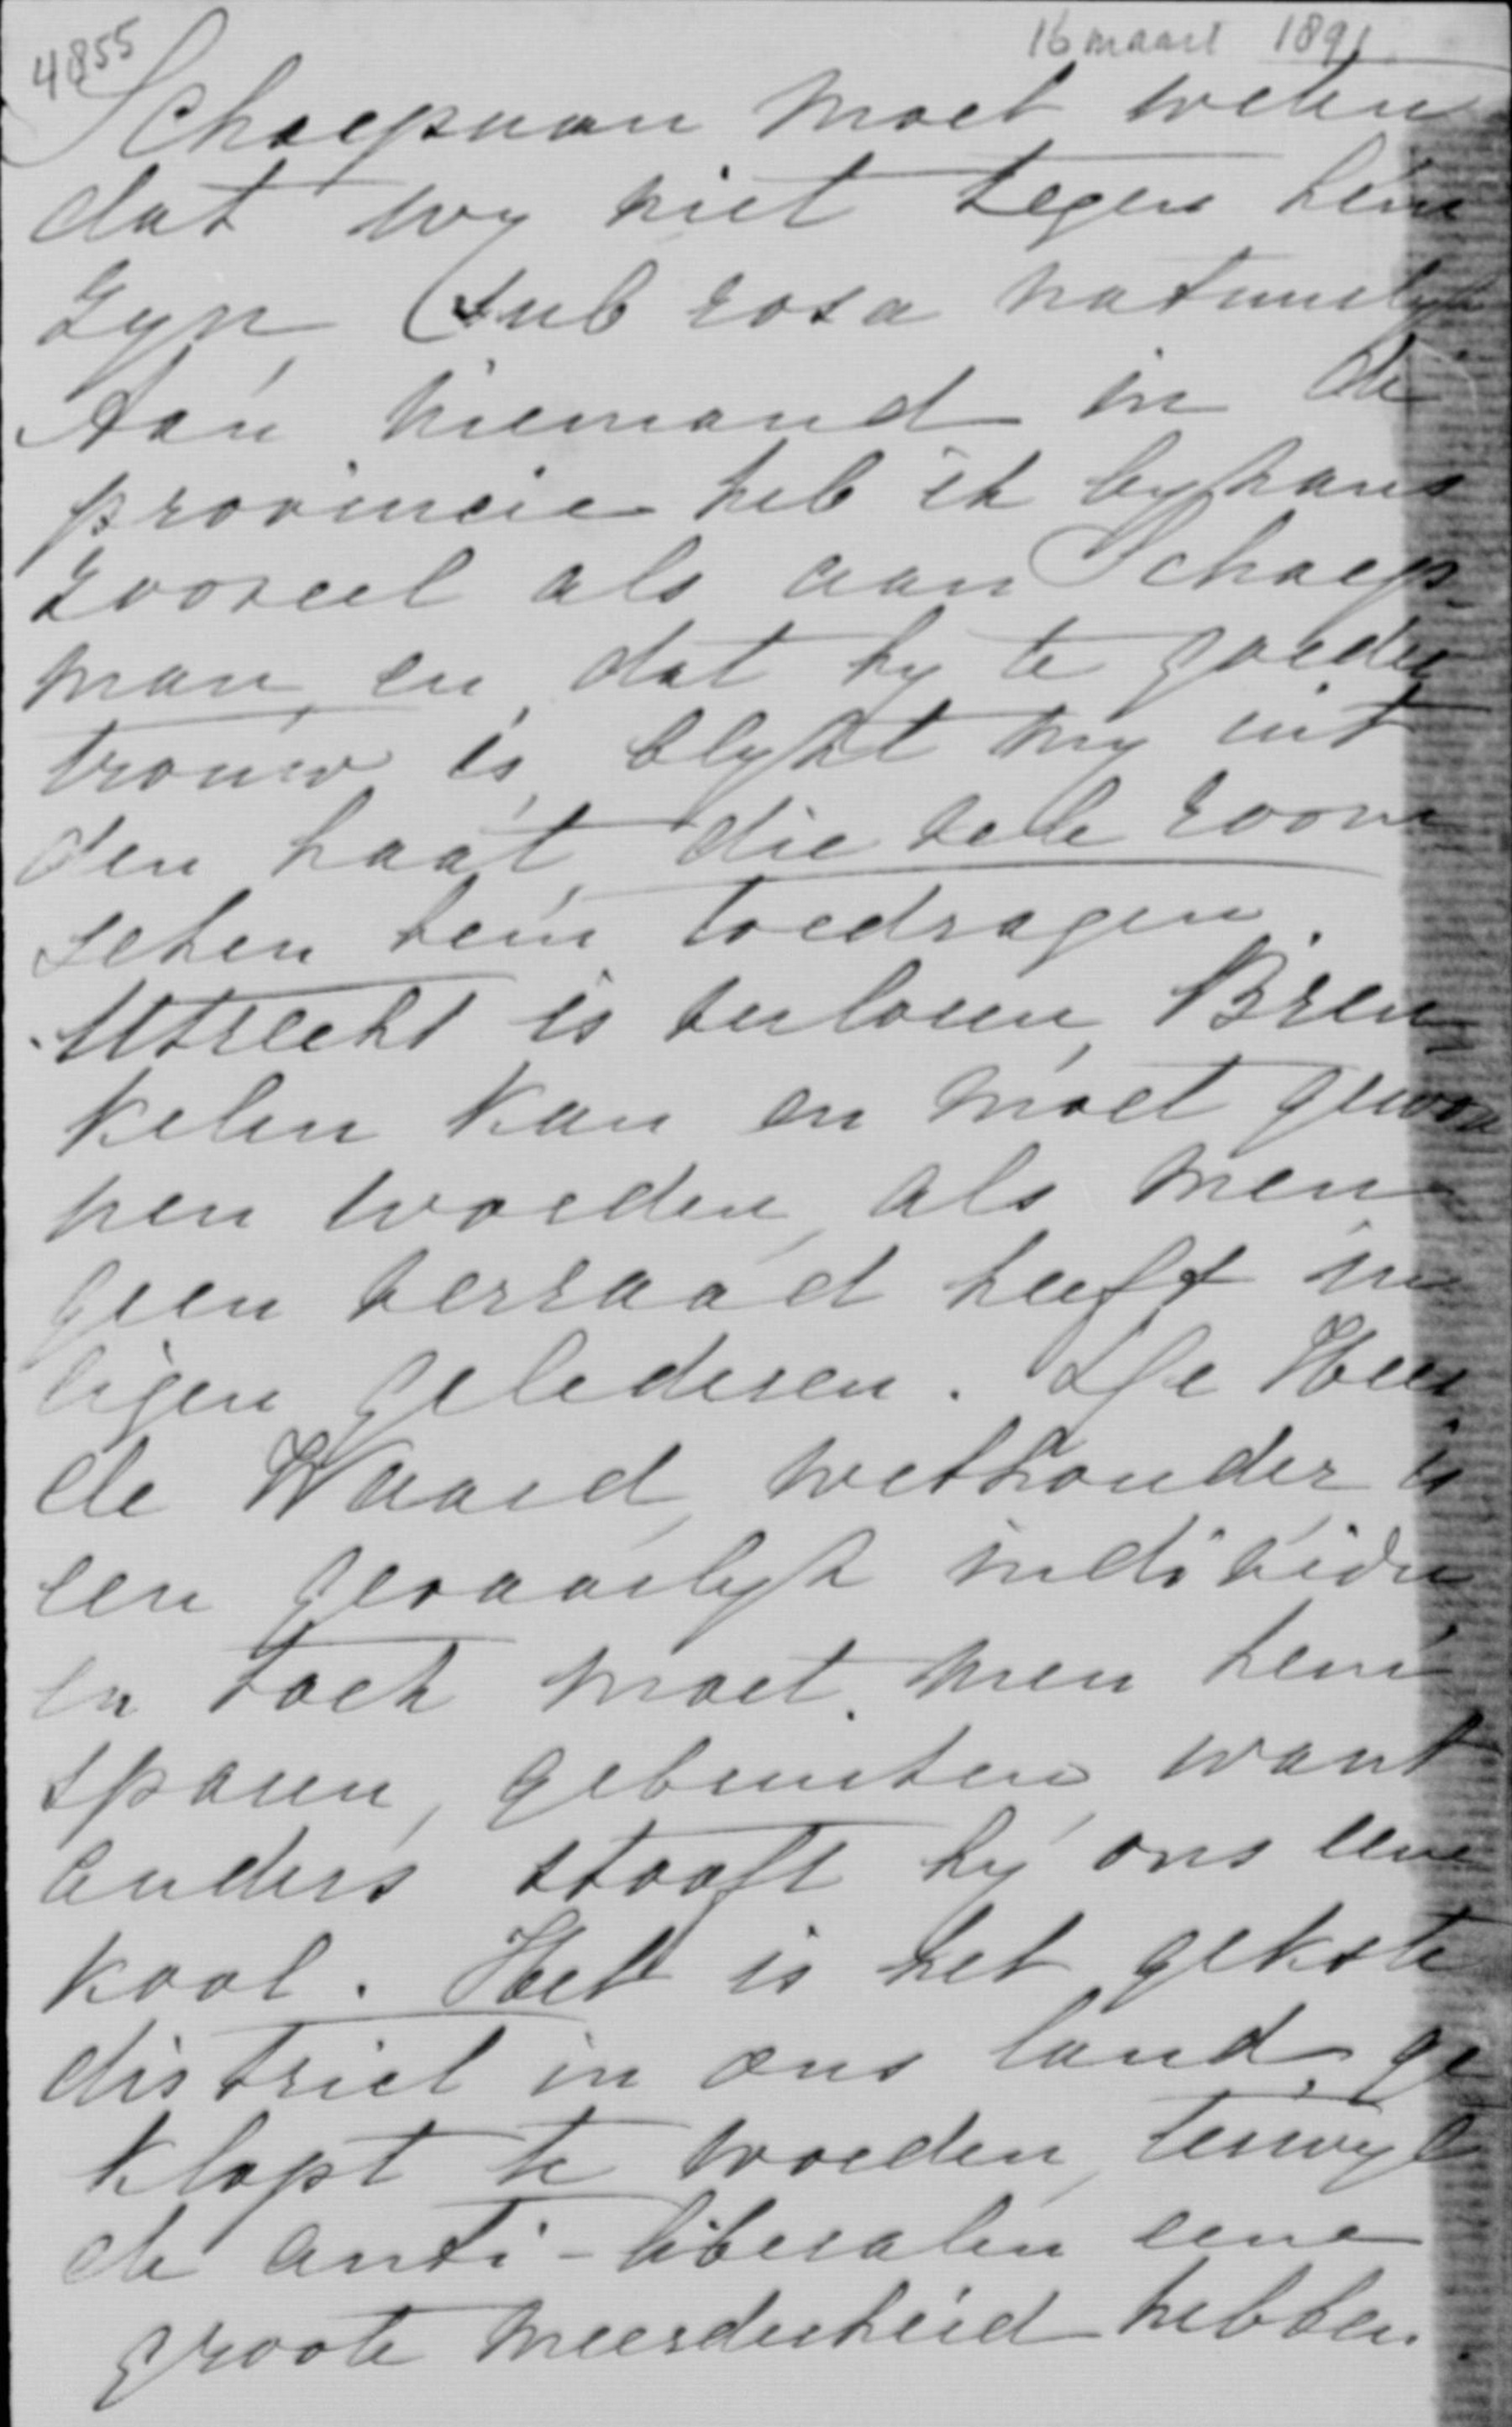 4855
16 maart 1891
Schaepman moet weten
dat wy niet tegen hem
zyn, (sub rosa natuurlyk
Aan niemand in de
provincie heb ik byhans
zooveel als aan Schaep
man, en dat hy te goeder
trouw is, blykt my uit
den haat, die vele room
schen hem toedragen.
Utrecht is verloren, Breu
kelen kan en moet gewon
nen worden, als men
geen verraad heeft in
eigen gelederen. De Heer
de Waard, wethouder is
een gevaarlyk individu
en toch moet men hem
sparen, gebruiken, want
anders stooft hy ons eene
kool. Het is het gekste
district in ons land, ge
klopt te worden, terwyl
de anti-liberalen eene
groote meerderheid hebben.